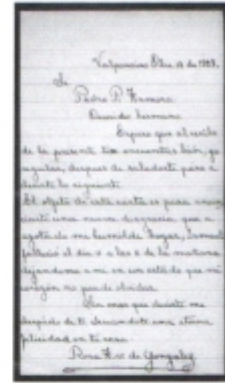 Valparaiso de 1928.
Sr.
Pedro P. Zamora
Querido hermano
Espero que al recibo
de la presente te encuentres bien, yo
regular, despues de saludarte paso a
decirte lo siguiente.
El objeto de esta carta es para
una nueva desgracia, que a
de mi humilde hogar,
fallecio el dia a las 8 de la mañana
dejandome a mi en un estado que mi
corazon no puede olvidar.
Sin mas que decirte me
despido de ti deseandote una eterna
felicidad en tu casa.
Rosa de Gonzalez